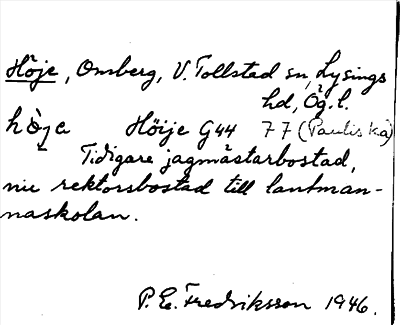 Höje, Omberg, V. Tollstad sn, Lysings
hd, Ög. l.
hö̀je Höije G44 77 (Pauliska)
Tidigare jagmästarbostad,
nu rektorsbostad till lantman-
naskolan.
P. E. Fredriksson 1946.